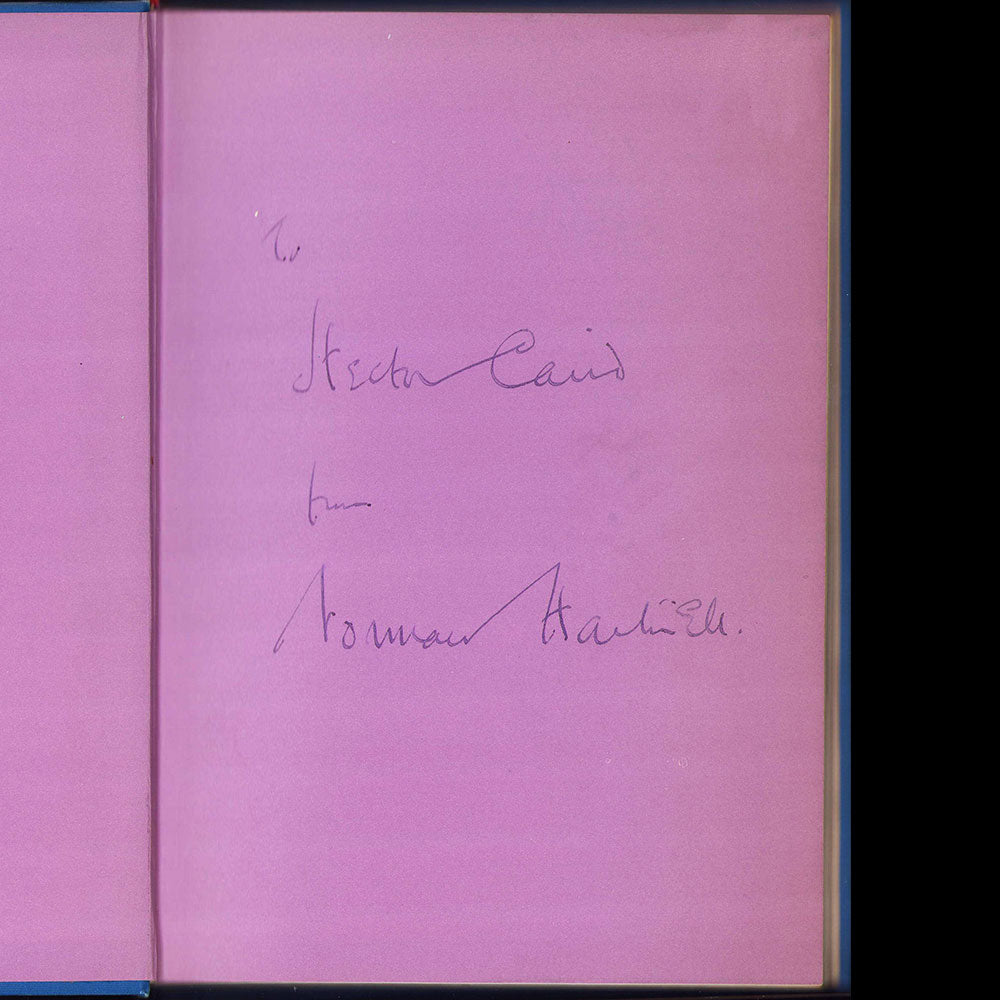 To
Hector Caird
from
Norman Hartnell.